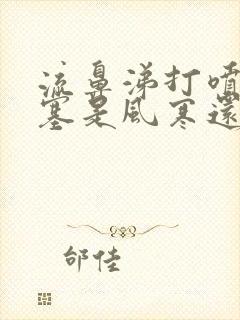 流鼻涕打噴
塞是風寒還
邰佳